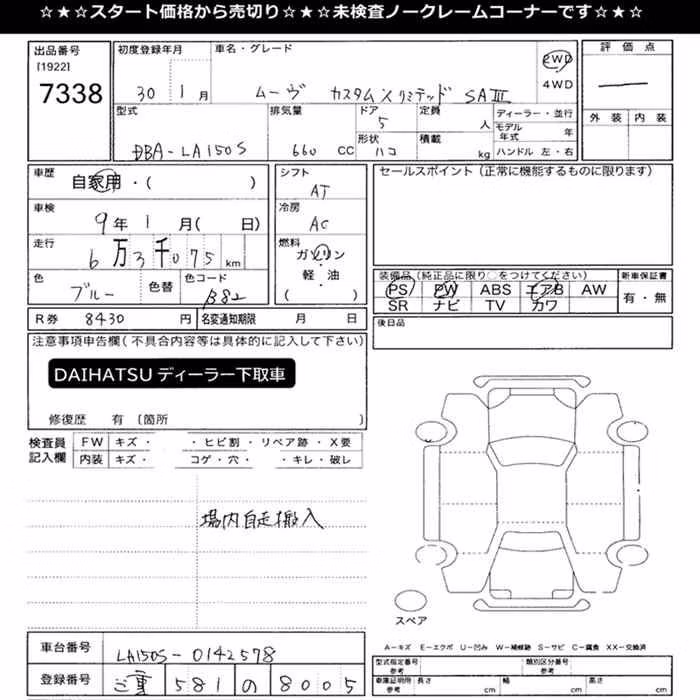 ☆★☆スタート価格から売切り☆★☆未検査ノークレームコーナーです☆★☆
出品番号
[1922]
7338
初度登録年月
30 1月
車名・グレード
ムーヴ カスタムXリミテッド SAⅢ
2WD
4WD
評価点
外装 内装
型式
DBA-LA150S
排気量
660 CC
ドア
5
形状
ハコ
定員
人
積載
kg
ディーラー・並行
モデル年式 年
ハンドル 左・右
車歴
自家用・( )
車検
9年1月( 日)
走行
6万3千075 km
色
ブルー
色替
色コード
B82
シフト
AT
冷房
AC
燃料
ガソリン
軽・油
( )
セールスポイント(正常に機能するものに限ります)
装備品(純正品に限り○をつけてください)
PS PW ABS エアB AW
SR ナビ TV カワ
新車保証書
有・無
R券 8430 円
名変通知期限 月 日
後日品
注意事項申告欄(不具合内容等は具体的に記入して下さい)
DAIHATSUディーラー下取車
修復歴 有〔箇所
検査員
記入欄
FW キズ・ ・ヒビ割・リペア跡・X要
内装 キズ・ コゲ・穴・ ・キレ・破レ
場内自走搬入
スペア
車台番号
LA150S-0142578
登録番号
三重 581 の 8005
A-キズ E-エクボ U-凹み W-補修跡 S-サビ C-腐食 XX-交換済
型式指定番号
参考
類別区分番号
参考
車庫証明用
参考
長さ cm 幅 cm 高さ cm